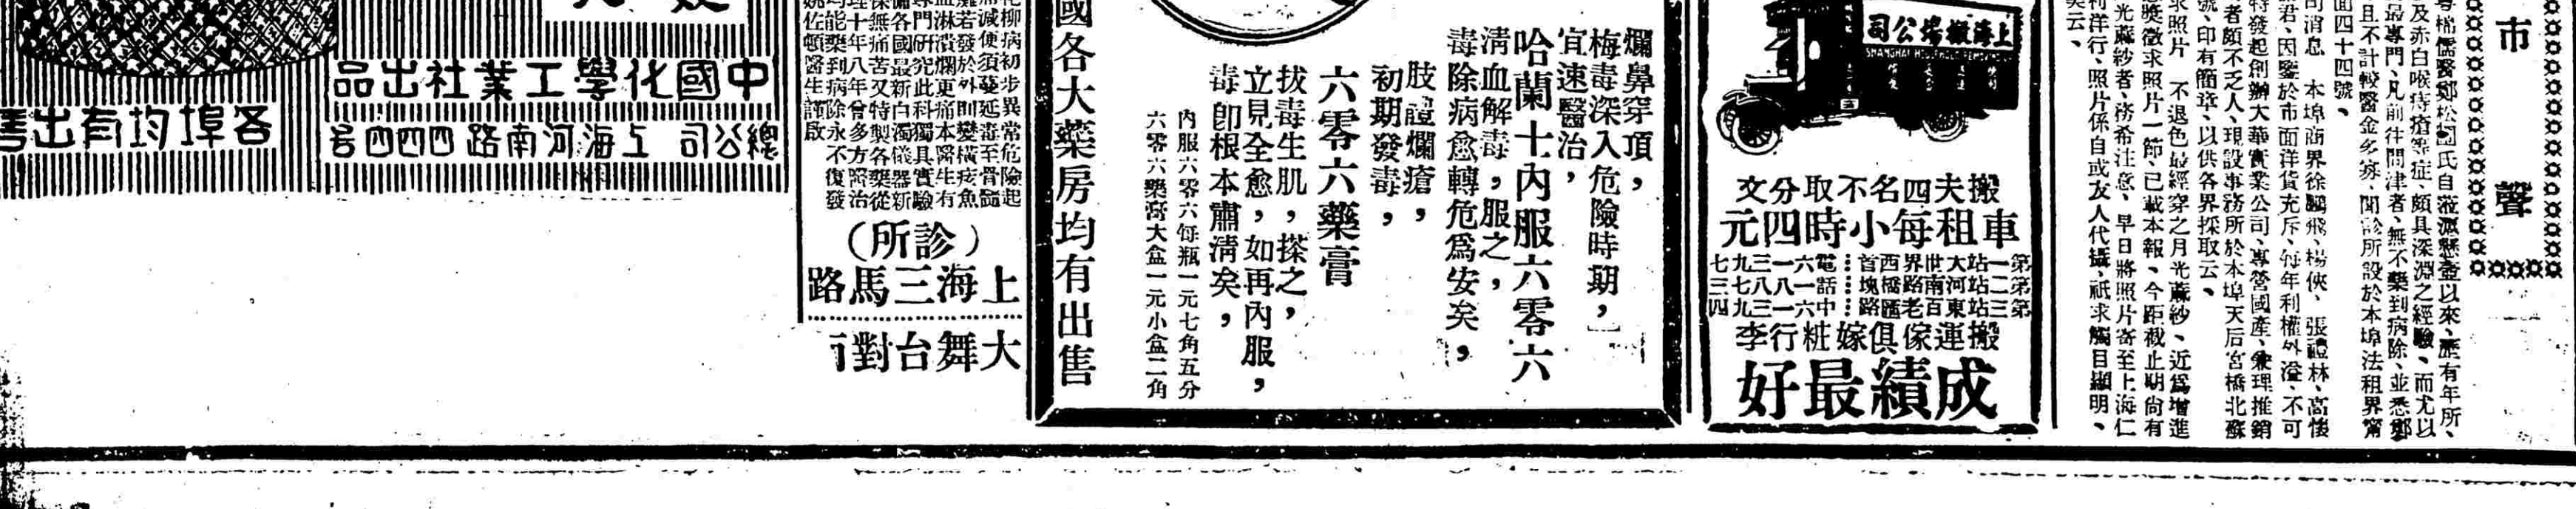 市聲
粵棉儒醫鄭松園氏自蒞滬懸壺以來、歷有年所、
及赤白喉痔瘡等症、頗具深淵之經驗、而尤以
最專門、凡前往問津者、無不藥到病除、並悉鄭
且不計較醫金多寡、聞診所設於本埠法租界甯
面四十四號、
司消息　本埠商界徐鵬飛、楊俠、張禮林、高懐
君、因鑒於市面洋貨充斥、每年利權外溢、不可
特發起創辦大華實業公司、專營國產、兼理推銷
者頗不乏人、現設事務所於本埠天后宮橋北蘇
號、印有簡章、以供各界採取云、
求照片　不退色最經穿之月光蔴紗、近爲增進
獎徵求照片一節、已載本報、今距截止期尙有
光蔴紗者、務希注意、早日將照片寄至上海仁
利洋行、照片係自或友人代攝、祇求觸目顯明、
矣云、
上海搬場公司
SHANGHAI
搬夫四名不取分文
車租每小時四元
第一站大世界西首
第二站河南路橋塊
第三站東百老匯路
電話中
六一六
一八一
三八三
九七九
七三四
搬運傢俱嫁粧行李
成績最好
爛鼻穿頂，
梅毒深入危險時期，
宜速醫治，
哈蘭士內服六零六
淸血解毒，服之，
毒除病愈轉危爲安矣，
肢體爛瘡，
初期發毒，
六零六藥膏
拔毒生肌，搽之，
立見全愈，如再內服，
毒卽根本肅淸矣，
內服六零六每瓶一元七角五分
六零六藥膏大盒一元小盒二角
國各大藥房均有出售
花柳病初步異常危險起
減便須蔓延毒至骨髓
若發於外則變橫痃魚
血淋潰爛更痛本醫生有
專門研究此科獨具實驗
備各國最新白濁儀器新
保無痛苦又特製各藥從
理十年八年曾多方醫治
均能藥到病除永不復發
姚佐頓醫生謹啟
（診所）
上海三馬路
大舞台對
中國化學工業社出品
總公司 上海河南路四四四號
各埠均有出售